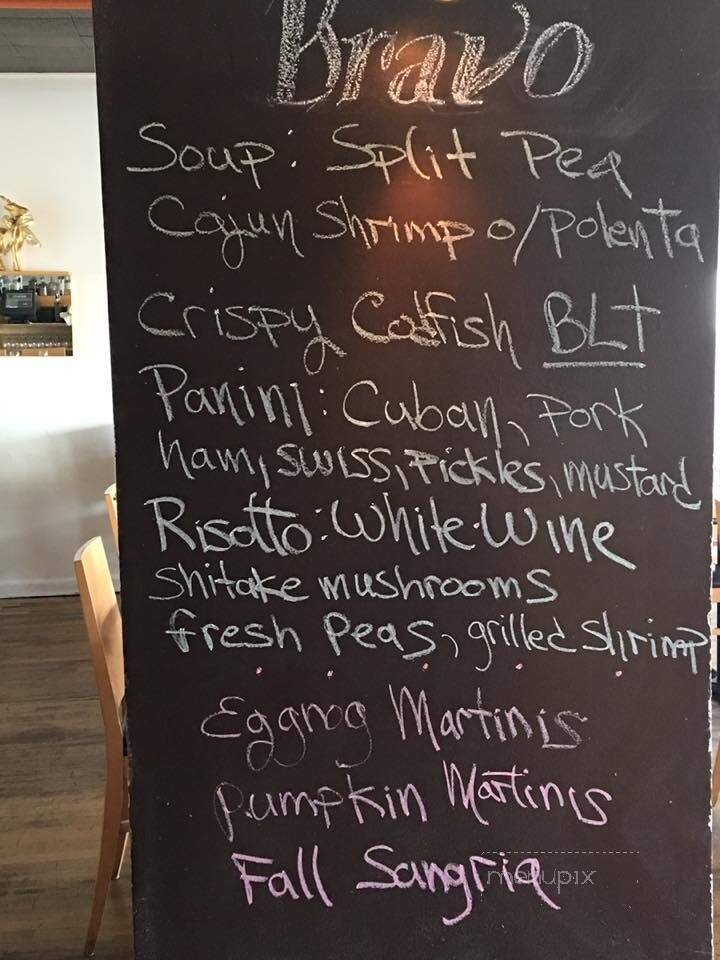 Bravo
Soup: Split Pea
Cajun Shrimp o/Polenta
Crispy Catfish BLT
Panini: Cuban, Pork
ham, swiss, Pickles, mustard
Risotto: White Wine
Shitake mushrooms
fresh Peas, grilled shrimp
Eggnog Martinis
Pumpkin Martinis
Fall Sangria
menupix